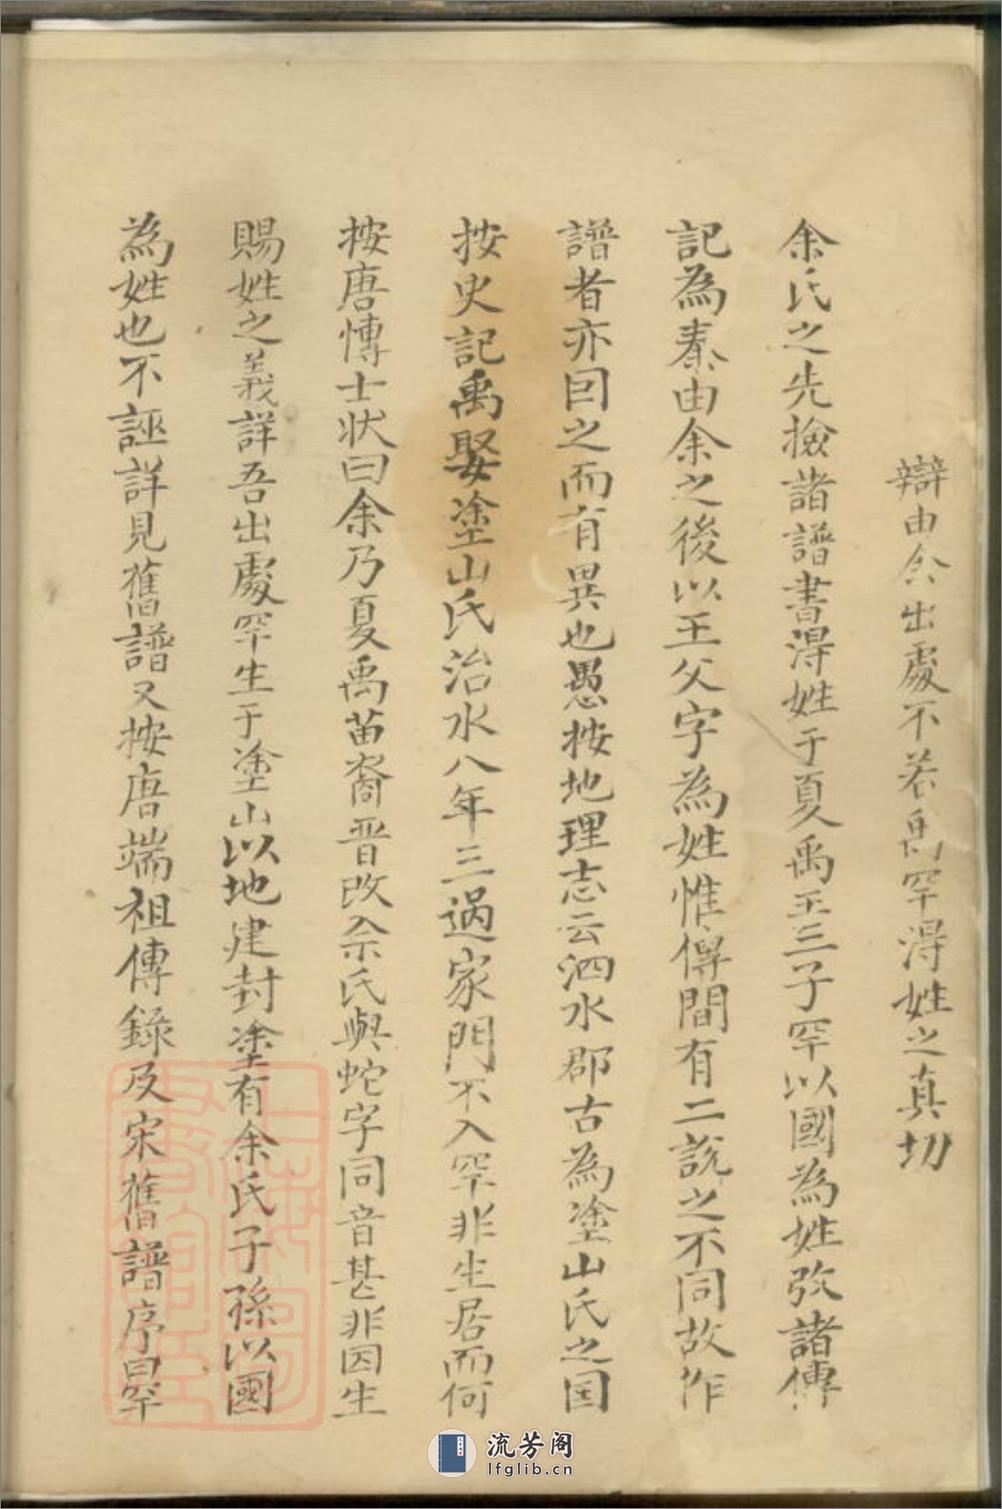 辯由余出處不若禹罕淂姓之真切
余氏之先撿諸譜書淂姓于夏禹王三子罕以國為姓攷諸傳
記為秦由余之後以王父字為姓惟傳間有二說之不同故作
譜者亦因之而有異也愚按地理志云泗水郡古為塗山氏之国
按史記禹娶塗山氏治水八年三過家門不入罕非生居而何
按唐博士状曰余乃夏禹苗裔晋改佘氏與蛇字同音甚非因生
賜姓之義詳吾出處罕生于塗山以地建封塗有余氏子孫以國
為姓也不誣詳見舊譜又按唐端祖傳錄及宋舊譜序曰罕
流芳阁
lfglib.cn